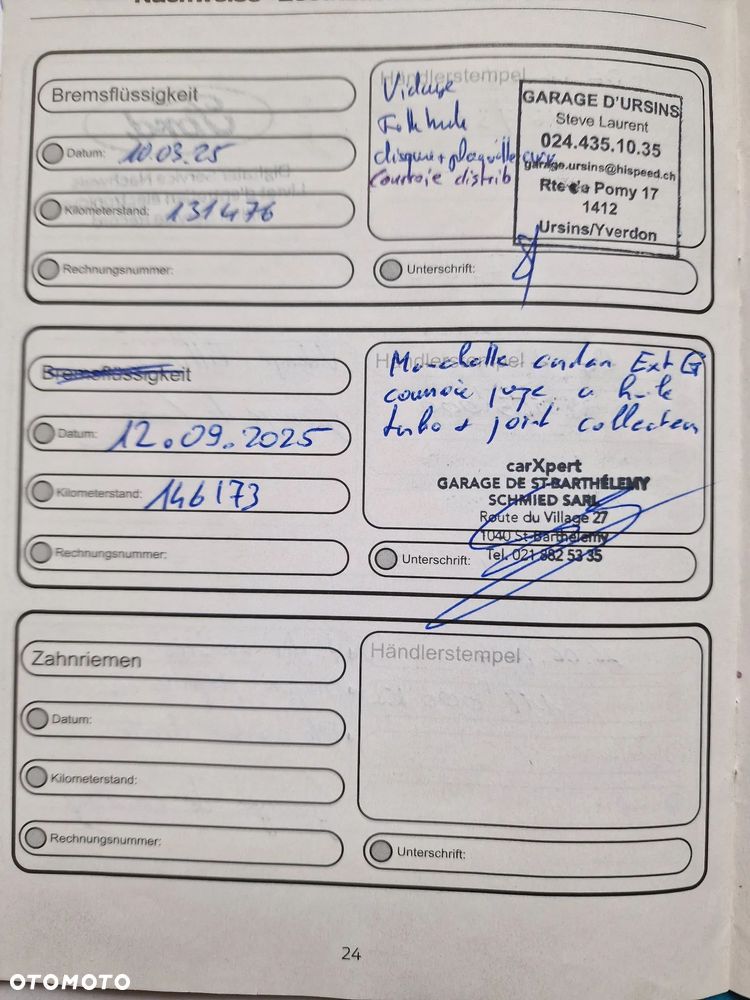 Bremsflüssigkeit
Datum: 10.03.25
Kilometerstand: 131476
Rechnungsnummer:
Händlerstempel
Vidage
disque + plaquette
Courroie distrib
GARAGE D'URSINS
Steve Laurent
024.435.10.35
garage.ursins@hispeed.ch
Rte de Pomy 17
1412
Ursins/Yverdon
Unterschrift:
Bremsflüssigkeit
Datum: 12.09.2025
Kilometerstand: 146173
Rechnungsnummer:
Händlerstempel
Manchette cardan Ext G
courroie
turbo + joint collecteur
carXpert
GARAGE DE ST-BARTHÉLEMY
SCHMIED SARL
Route du Village 27
1040 St-Barthélemy
Tel. 021 882 53 35
Unterschrift:
Zahnriemen
Datum:
Kilometerstand:
Rechnungsnummer:
Händlerstempel
Unterschrift:
24
OTOMOTO